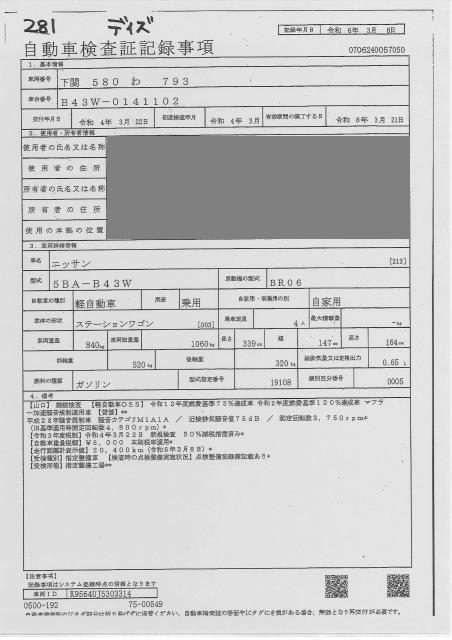 281 デイズ
記録年月日 令和 6年 3月 8日
自動車検査証記録事項
0706240057050
1. 基本情報
車両番号 下関 580 わ 793
車台番号 B43W-0141102
交付年月日 令和 4年 3月 22日 初度検査年月 令和 4年 3月 有効期間の満了する日 令和 8年 3月 21日
2. 使用者・所有者情報
使用者の氏名又は名称
使用者の住所
所有者の氏名又は名称
所有者の住所
使用の本拠の位置
3. 車両詳細情報
車名 ニッサン [213]
型式 5BA-B43W 原動機の型式 BR06
自動車の種別 軽自動車 用途 乗用 自家用・事業用の別 自家用
車体の形状 ステーションワゴン [003] 乗車定員 4人 最大積載量 -kg
車両重量 840kg 車両総重量 1060kg 長さ 339cm 幅 147cm 高さ 164cm
前軸重 520kg 後軸重 320kg 総排気量又は定格出力 0.65 L
燃料の種類 ガソリン 型式指定番号 19108 類別区分番号 0005
4. 備考
【山口】 継続検査 【軽自動車OSS】 令和12年度燃費基準75%達成車 令和2年度燃費基準120%達成車 マフラ
ー加速騒音規制適用車 【貸渡】**
平成28年騒音規制車 騒音カテゴリM1A1A / 近接排気騒音値75dB / 測定回転数3,750rpm*
(旧基準適用時測定回転数4,800rpm)*
【令和3年度税制】令和4年3月22日 新規検査 50%減税措置済み*
【自動車重量税額】¥5,000 本則税率適用*
【走行距離計表示値】20,400km(令和6年3月8日)*
【受検種別】指定整備車 【検査時の点検整備実施状況】点検整備記録簿記載あり*
【受検形態】指定整備工場**
【注意事項】
記録事項はシステム登録時点の情報となります
車両ID K9564UJ5303314
0500-192 75-00549
自動車検査証のICタグ部分は折り曲げずに保管ください。自動車検査証の券面やICタグにき損がある場合、無効となり再交付が必要です。